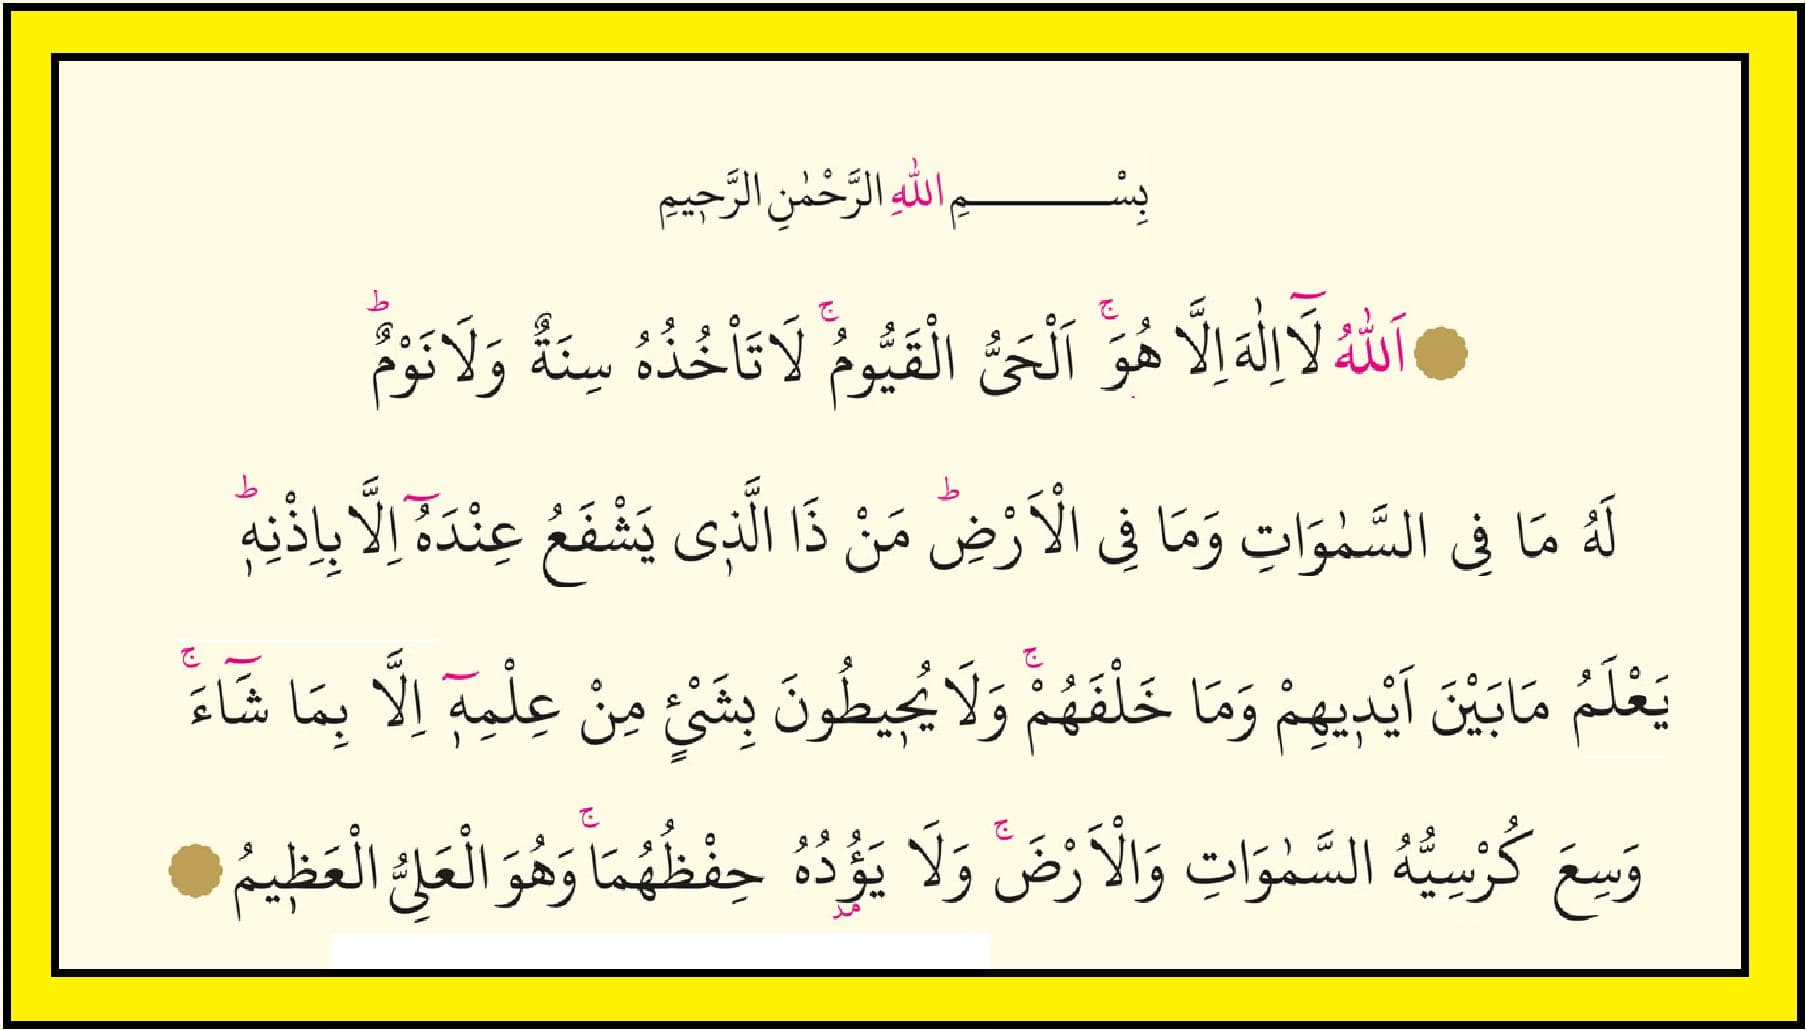 بِسْــــــــمِ اللّٰهِ الرَّحْمٰنِ الرَّحٖيمِ
اَللّٰهُ لَٓا اِلٰهَ اِلَّا هُوَۚ اَلْحَىُّ الْقَيُّومُۚ لَا تَاْخُذُهُ سِنَةٌ وَلَا نَوْمٌؕ
لَهُ مَا فِى السَّمٰوَاتِ وَمَا فِى الْاَرْضِؕ مَنْ ذَا الَّذٖى يَشْفَعُ عِنْدَهُٓ اِلَّا بِاِذْنِهٖؕ
يَعْلَمُ مَا بَيْنَ اَيْدٖيهِمْ وَمَا خَلْفَهُمْۚ وَلَا يُحٖيطُونَ بِشَىْئٍ مِنْ عِلْمِهٖٓ اِلَّا بِمَا شَٓاءَۚ
وَسِعَ كُرْسِيُّهُ السَّمٰوَاتِ وَالْاَرْضَۚ وَلَا يَؤُدُهُ حِفْظُهُمَاۚ وَهُوَ الْعَلِىُّ الْعَظٖيمُ
مد